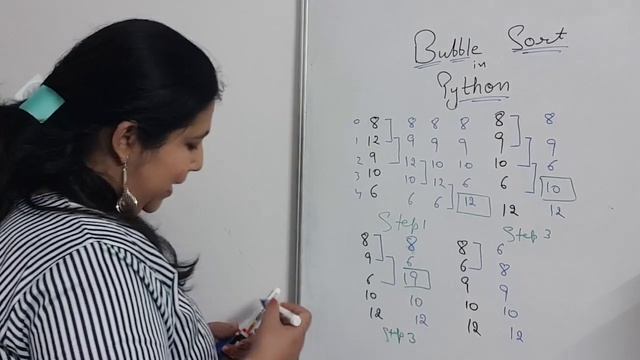 Bubble Sort
in
Python
0 8 8 8 8 8 8
1 12 9 9 9 9 9
2 9 12 10 10 10 6
3 10 10 12 6 6 10
4 6 6 6 12 12 12
Step 1 Step 3
8 8 8 6
9 6 6 8
6 9 9 9
10 10 10 10
12 12 12 12
Step 3